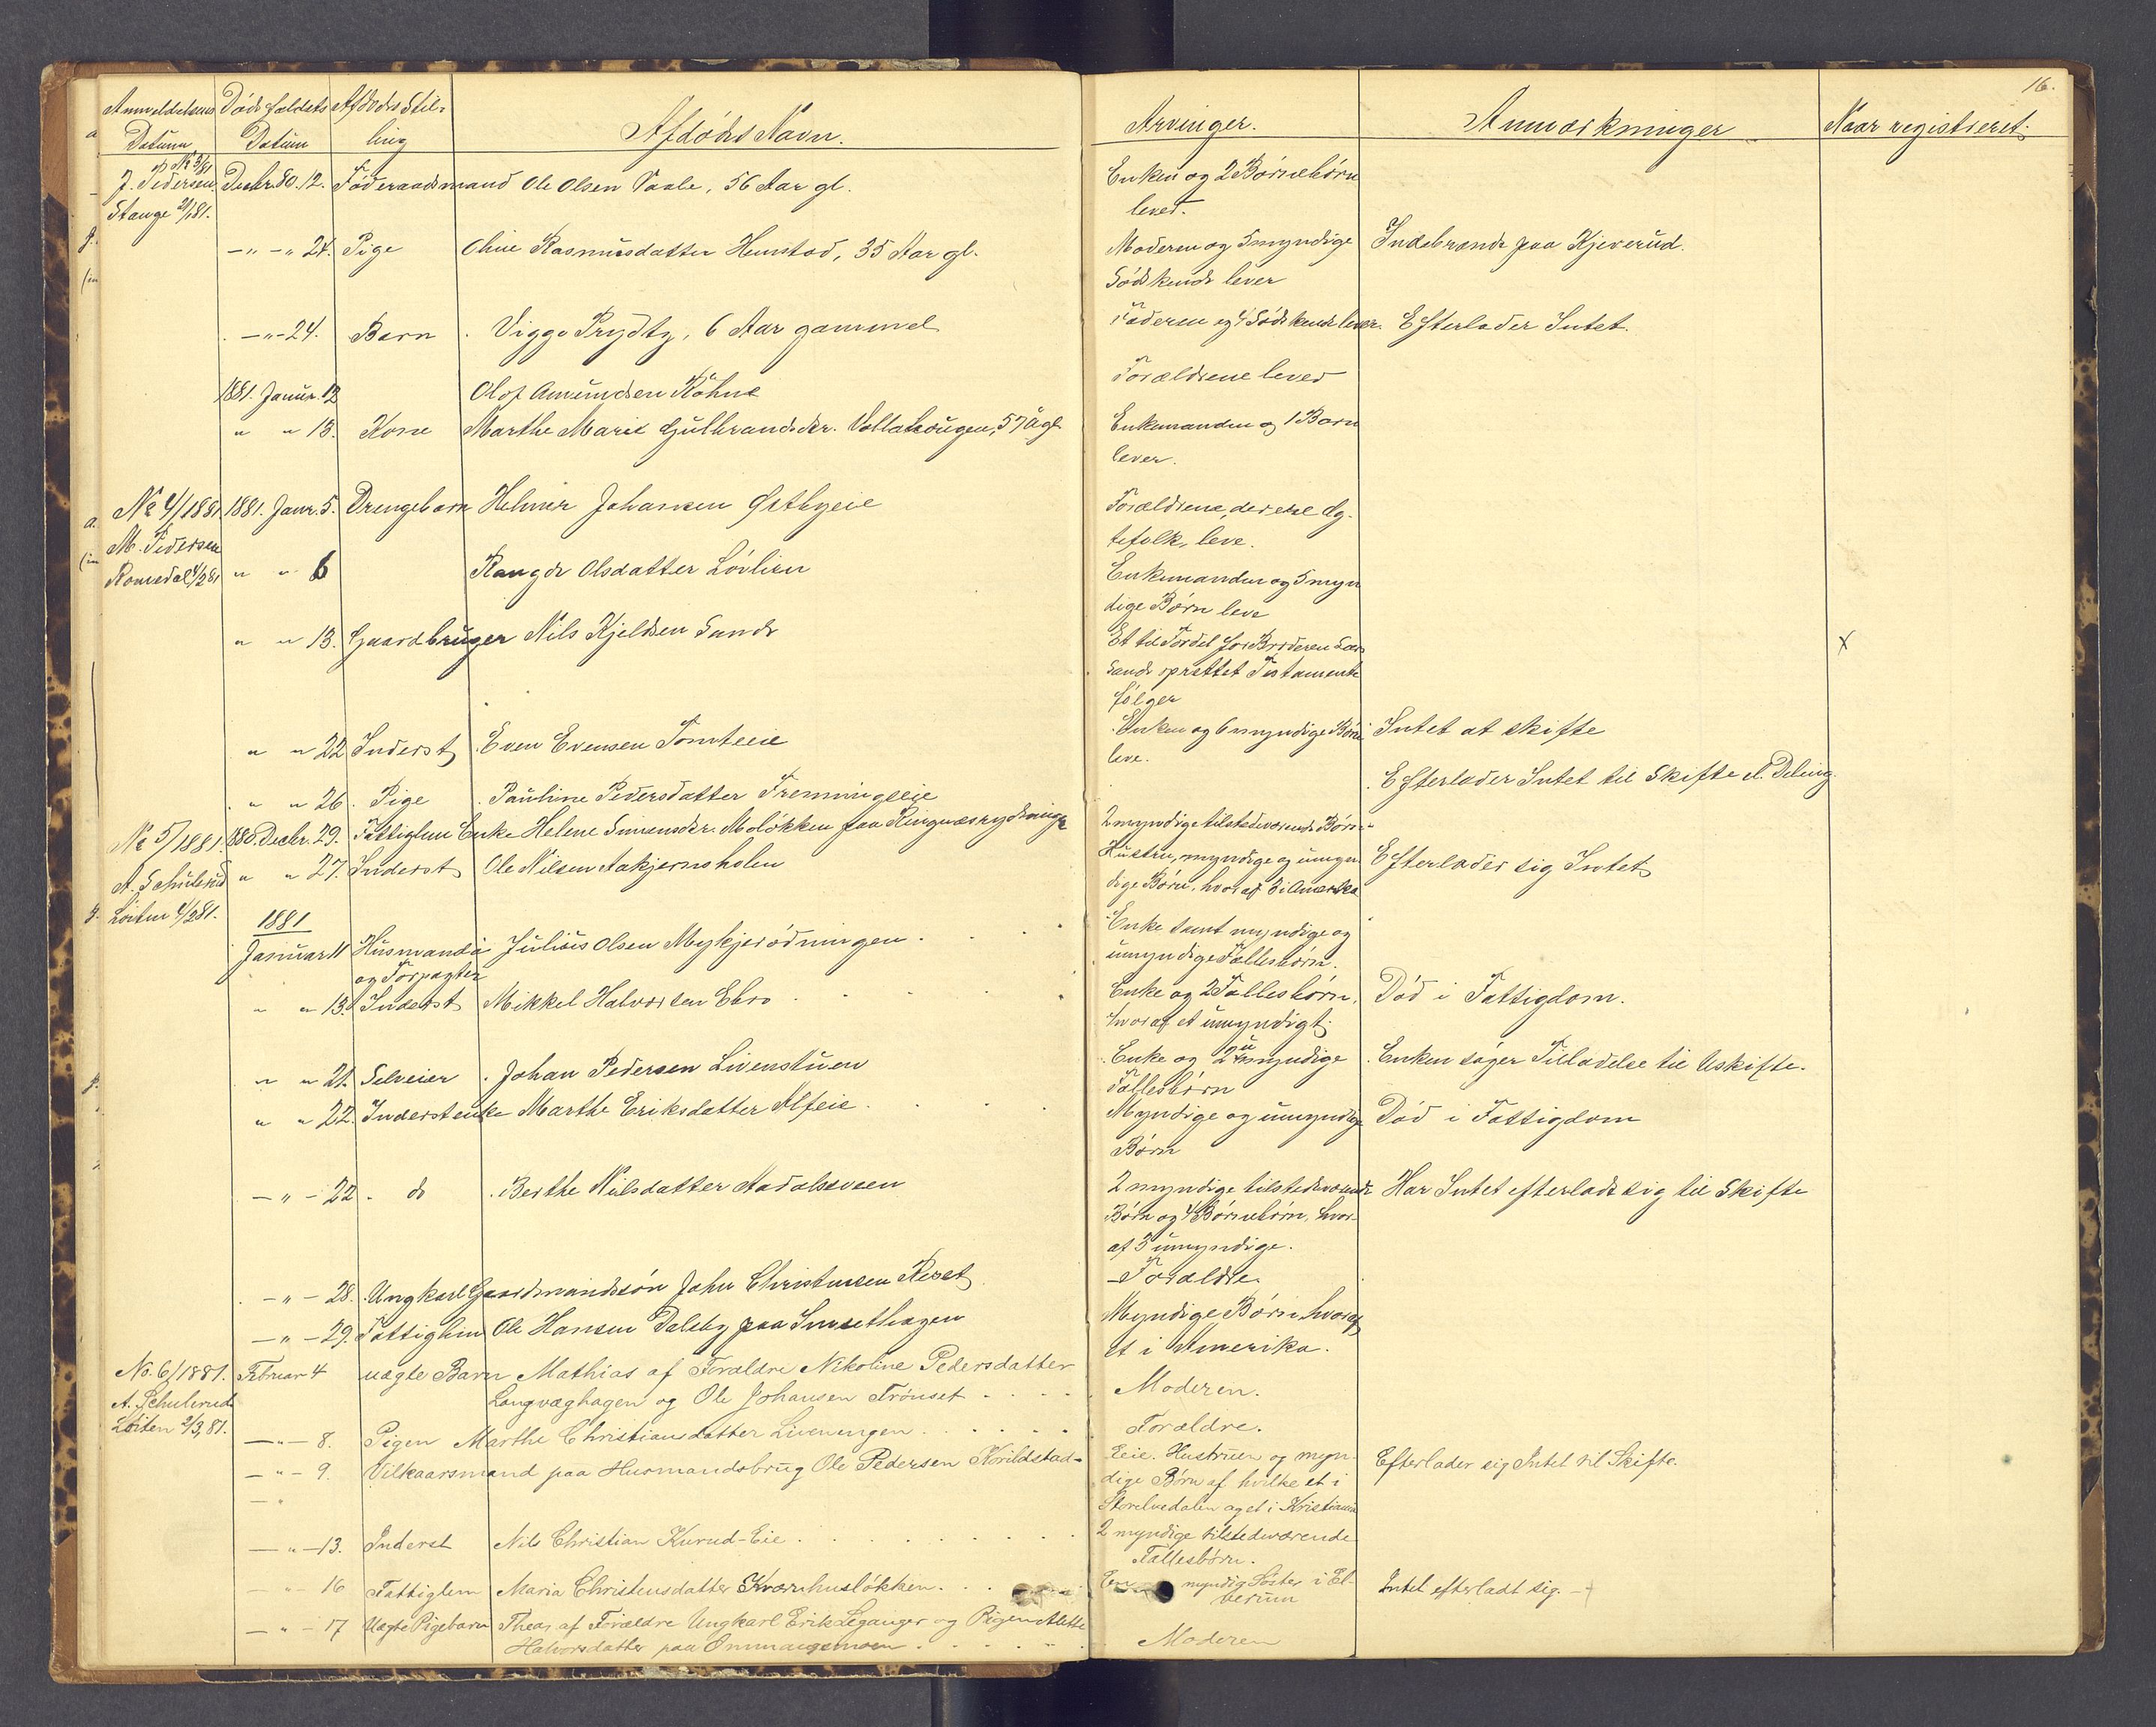 16.
Anmeldelsens Datum
Dödsfaldets Datum
Afdödes Stilling
Afdödes Navn.
Arvinger.
Anmærkninger
Naar registreret.
No 3/81 J. Pedersen Decbr. 80. 12. Föderaadsmand Ole Olsen Saale, 56 Aar gl. Enken og 2 Börnebörn
Stange 2/1 81. lever.
—„—„ 24. Pige Oline Rasmusdatter Hemstad, 35 Aar gl. Moderen og 5 myndige Indebrændt paa Kjeverud.
Södskende lever
—„— 24. Barn Viggo Prydtz, 6 Aar gammel Faderen og 4 Södskende lever. Efterlader Intet.
1881. Januar. 12 Olof Amundsen Röhne Forældrene lever
„ „ 13. Kone Marthe Marie Gulbrandsdr. Vollahaugen, 57 Aar gl. Enkemanden og 1 Barn
lever.
No 4/1881 1881. Janr. 5. Drengebarn Helmer Johansen Østbyeie Forældrene, der ere Æg-
M. Pedersen tefolk, leve.
Romedal 4/2 81 „ „ 6 Rangdi Olsdatter Lövlien Enkemanden og 5 myn
dige Börn leve
„ „ 13. Gaardbruger Nils Kjeldsen Sande Et til Fordel for Broderen Lars X
Sande oprettet Testamente
fölger
„ „ 22 Inderst Even Evensen Tomteeie Enken og 6 myndige Börn Intet at skifte
leve.
„ „ 26. Pige Pauline Pedersdatter Fremmingeie Efterlader Intet til Skifte el. Deling.
No 5/1881. 1880. Decbr. 29. Fattiglem Enke Helene Simensdr. Molökken paa Ringnæsrydningen 2 myndige tilstedeværende Börn
A. Schulerud „ „ 27. Inderst Ole Nilsen Aakjernsholen Hustru, myndige og umyn Efterlader sig Intet
dige Börn, hvoraf 3 i Amerika
Löiten 4/2 81. 1881
Januar 11 Husmand og Forpagter Julius Olsen Myhjerödningen Enke samt myndige og
umyndige Fællesbörn.
„ „ 13. Inderst Mikkel Halvorsen Ebro Enke og 2 Fællesbörn, Död i Fattigdom.
hvoraf et umyndigt.
„ „ 21. Selveier Johan Pedersen Livenstuen Enke og 2 umyndige Enken söger Tilladelse til Uskifte.
Fællesbörn
„ „ 22. Inderstenke Marthe Eriksdatter Alfeie Myndige og umyndige Död i Fattigdom
Börn
—„— 22 do Berthe Nilsdatter Aadalsveen 2 myndige tilstedeværende Har Intet efterladt sig til Skifte
Börn og 4 Börnebörn, hvor-
af 3 umyndige.
—„— 28. Ungkarl Gaardmandssön John Christensen Reset Forældre.
—„— 29. Fattiglem Ole Hansen Dalsby paa Smsethagen Myndige Börn hvoraf
et i Amerika.
No. 6/1881. Februar 4 uægte Barn Mathias af Forældre Nikoline Pedersdatter
A. Schulerud Langvæghagen og Ole Johansen Trönset Moderen.
Löiten 2/3 81. —„— 8. Pigen Marthe Christiansdatter Livenengen Forældre.
—„— 9. Vilkaarsmand paa Husmandsbrug Ole Pedersen Norildstad- Eeie. Hustruen og myn Efterlader sig Intet til Skifte.
dige Börn af hvilke et i
Storelvedalen og et i Kristiania
—„— 13. Inderst Nils Christian Kurud-Eie 2 myndige tilstedeværende
Fællesbörn.
—„— 16 Fattiglem Maria Christensdatter Kværnhuslökken. En myndig Söster i El- Intet efterladt sig.
verum
—„— 17 Uægte Pigebarn Thea, af Forældre Ungkarl Erik Leganger og Pigen Alette
Halvorsdatter paa Ommangsmoen Moderen